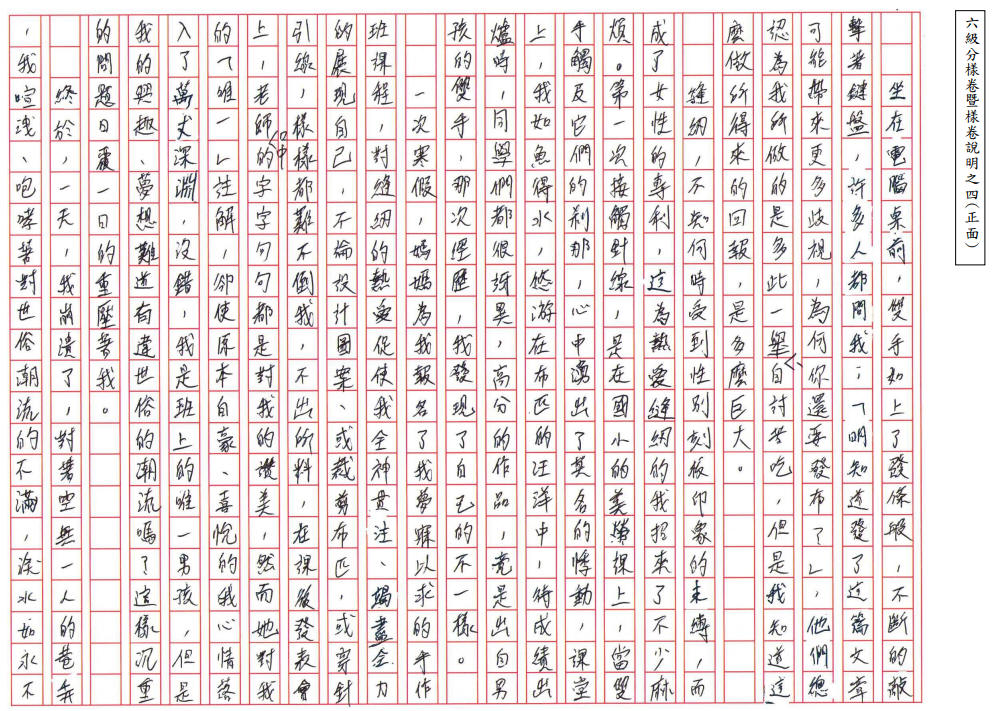 六級分樣卷暨樣卷說明之四(正面)
坐在電腦桌前,雙手如上了發條般,不斷的敲
擊著鍵盤,許多人都問我:「明知道發了這篇文章
可能帶來更多歧視,為何你還要發布?」,他們總
認為我所做的是多此一舉、自討苦吃,但是我知道這
麼做所得求的回報是多麼巨大。
縫紉,不知何時,受到性別刻板印象的束縛,而
成了女性的專利,這為熱愛縫紉的我招來了不少麻
煩。第一次接觸針線,是在國小的美勞課上,當雙
手觸及它們的剎那,心中湧出了莫名的悸動,課堂
上,我如魚得水,悠游在布匹的汪洋中,待成績出
爐時,同學們都很訝異,高分的作品,竟是出自男
孩的雙手,那次經歷,我發現了自己的不一樣。
一次寒假,媽媽為我報名了我夢寐以求的手作
班課程,對縫紉的熱愛促使我全神貫注、竭盡全力
的展現自己,不論設計圖案、或裁剪布匹、或穿針
引線,樣樣都難不倒我,不出所料,在課後發表會
上,老師口中的字字句句都是對我的讚美,然而她對我
的「唯一」註解,卻使原本自豪、喜悅的我心情落
入了萬丈深淵,沒錯,我是班上的唯一男孩,但是
我的興趣、夢想,難道有違世俗的潮流嗎?這樣沉重
的問題日覆一日的重壓著我。
終於,一天,我崩潰了,對著空無一人的巷弄
,我喧洩、咆哮著對世俗潮流的不滿,淚水如永不